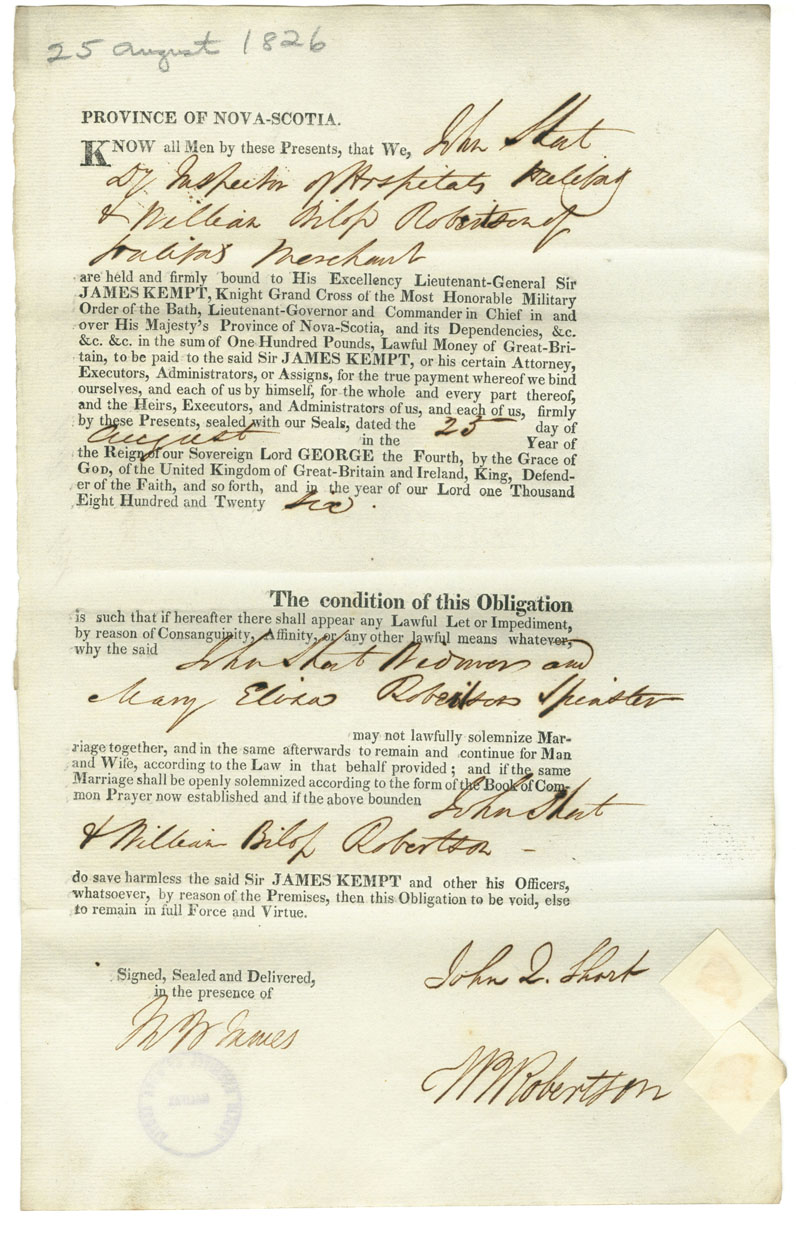 25 August 1826
PROVINCE OF NOVA-SCOTIA.
KNOW all Men by these Presents, that We, John Short
Dy Inspector of Hospitals Halifax
& William Bilop Robertson of
Halifax Merchant
are held and firmly bound to His Excellency Lieutenant-General Sir
JAMES KEMPT, Knight Grand Cross of the Most Honorable Military
Order of the Bath, Lieutenant-Governor and Commander in Chief in and
over His Majesty's Province of Nova-Scotia, and its Dependencies, &c.
&c. &c. in the sum of One Hundred Pounds, Lawful Money of Great-Bri-
tain, to be paid to the said Sir JAMES KEMPT, or his certain Attorney,
Executors, Administrators, or Assigns, for the true payment whereof we bind
ourselves, and each of us by himself, for the whole and every part thereof,
and the Heirs, Executors, and Administrators of us, and each of us, firmly
by these Presents, sealed with our Seals, dated the 25 day of
August in the Year of
the Reign of our Sovereign Lord GEORGE the Fourth, by the Grace of
GOD, of the United Kingdom of Great-Britain and Ireland, King, Defend-
er of the Faith, and so forth, and in the year of our Lord one Thousand
Eight Hundred and Twenty six.
The condition of this Obligation
is such that if hereafter there shall appear any Lawful Let or Impediment,
by reason of Consanguinity, Affinity, or any other lawful means whatever,
why the said John Short Widower and
Mary Eliza Robertson Spinster
may not lawfully solemnize Mar-
riage together, and in the same afterwards to remain and continue for Man
and Wife, according to the Law in that behalf provided; and if the same
Marriage shall be openly solemnized according to the form of the Book of Com-
mon Prayer now established and if the above bounden John Short
& William Bilop Robertson -
do save harmless the said Sir JAMES KEMPT and other his Officers,
whatsoever, by reason of the Premises, then this Obligation to be void, else
to remain in full Force and Virtue.
Signed, Sealed and Delivered,
in the presence of
John Q. Short
W B Robertson